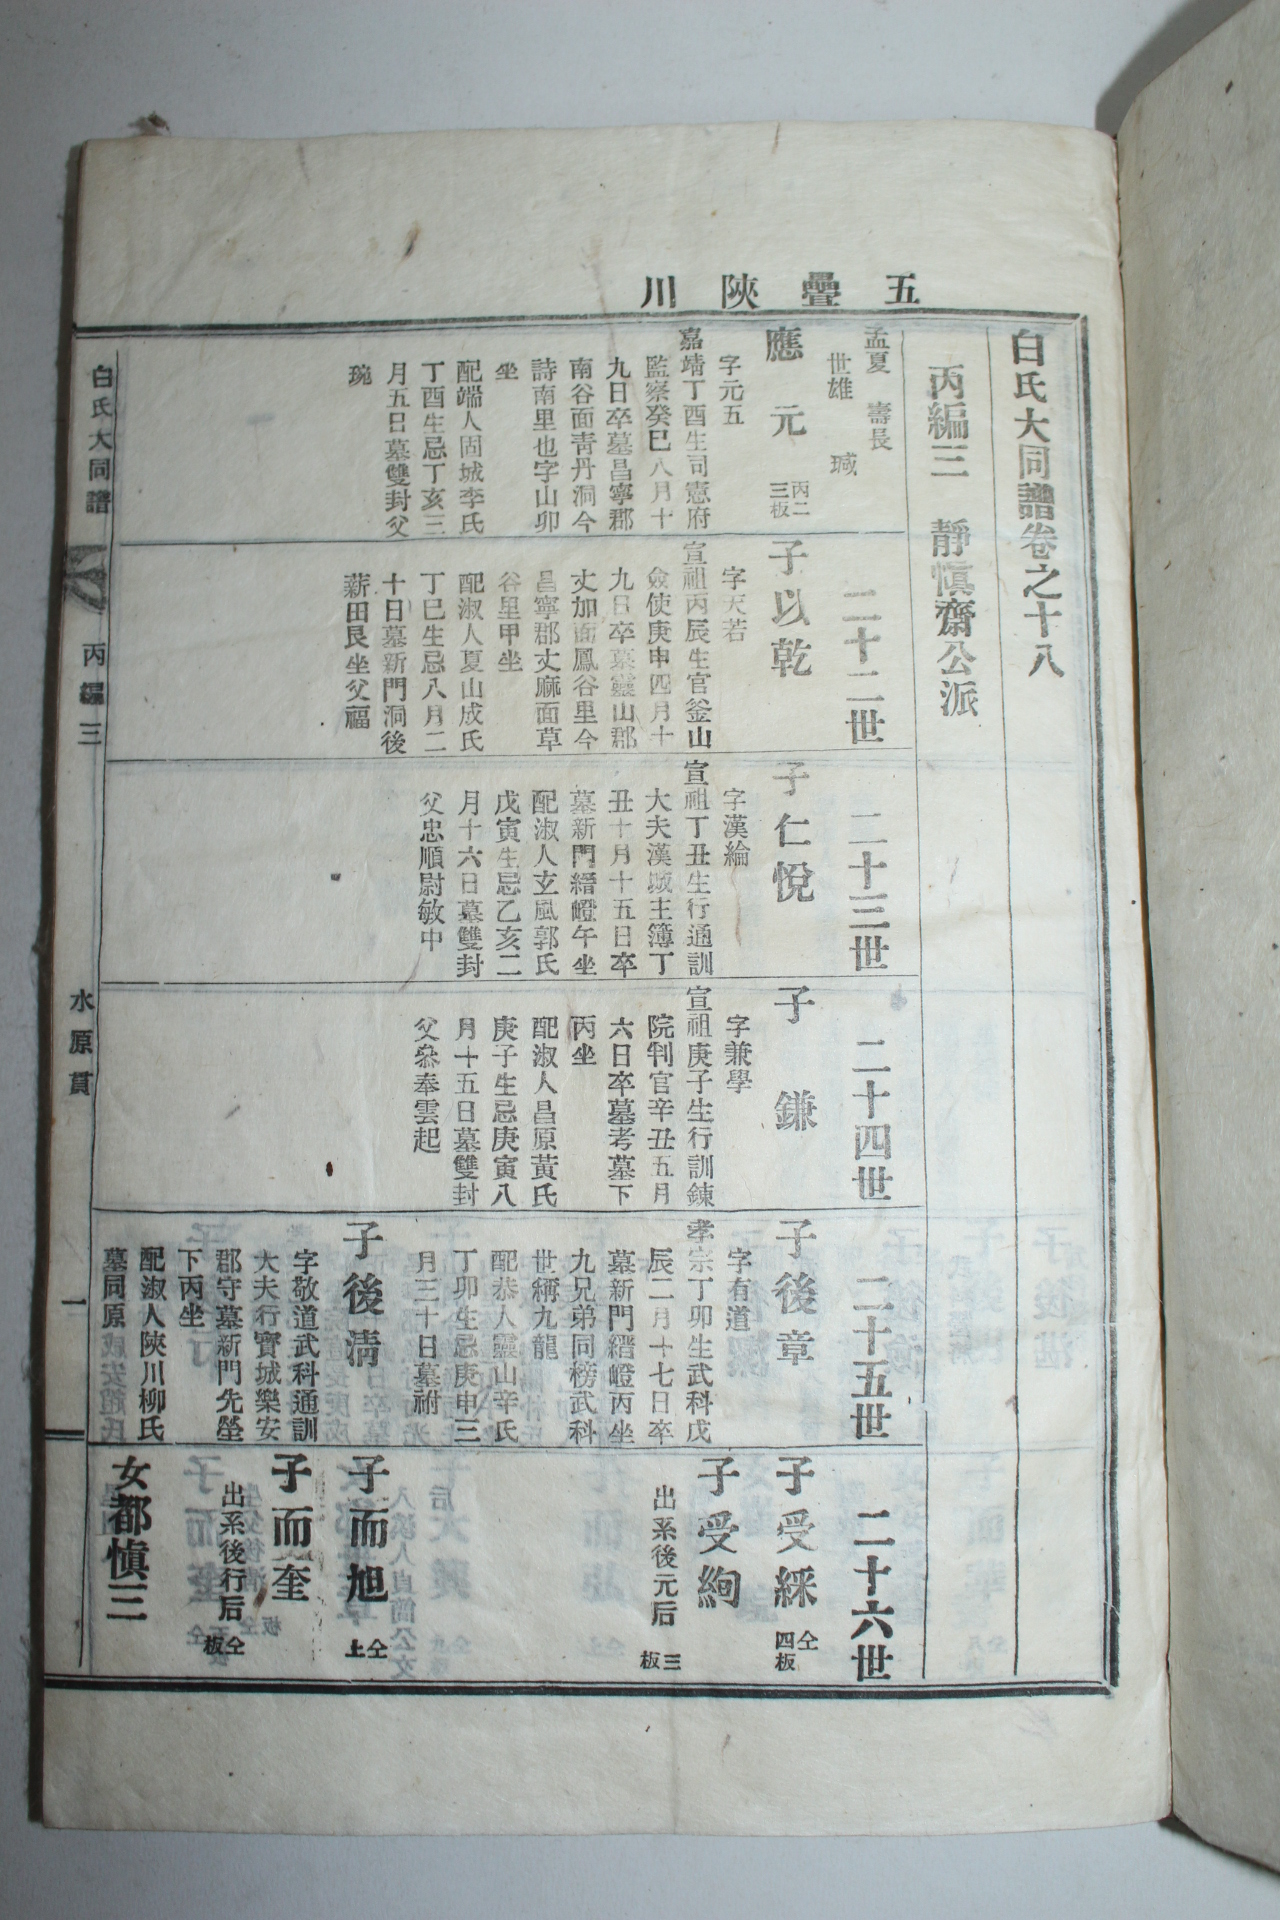 五疊陜川
白氏大同譜卷之十八
丙編三 靜愼齋公派
孟夏 壽長
世雄 珹
應元 丙二三板
字元五
嘉靖丁酉生司憲府
監察癸巳八月十
九日卒墓昌寧郡
南谷面靑丹洞今
詩南里也字山卯
坐
配端人固城李氏
丁酉生忌丁亥三
月五日墓雙封父
琬
二十二世
子以乾
字天若
宣祖丙辰生官釜山
僉使庚申四月十
九日卒墓靈山郡
丈加面鳳谷里今
昌寧郡丈麻面草
谷里甲坐
配淑人夏山成氏
丁巳生忌八月二
十日墓新門洞後
薪田艮坐父福
二十三世
子仁悅
字漢綸
宣祖丁丑生行通訓
大夫漢城主簿丁
丑十月十五日卒
墓新門縉嶝午坐
配淑人玄風郭氏
戊寅生忌乙亥二
月十六日墓雙封
父忠順尉敏中
二十四世
子鎌
字兼學
宣祖庚子生行訓鍊
院判官辛丑五月
六日卒墓考墓下
丙坐
配淑人昌原黃氏
庚子生忌庚寅八
月十五日墓雙封
父叅奉雲起
二十五世
子後章
字有道
孝宗丁卯生武科戊
辰二月十七日卒
墓新門縉嶝丙坐
九兄弟同榜武科
世稱九龍
配恭人靈山辛氏
丁卯生忌庚申三
月三十日墓祔
子後淸
字敬道武科通訓
大夫行寶城樂安
郡守墓新門先塋
下丙坐
配淑人陜川柳氏
墓同原
二十六世
子受綵 仝四板
子受絢
出系後元后 三板
子而旭 仝上
子而奎
出系後行后 仝板
女都愼三
白氏大同譜 丙編三 水原貫 一